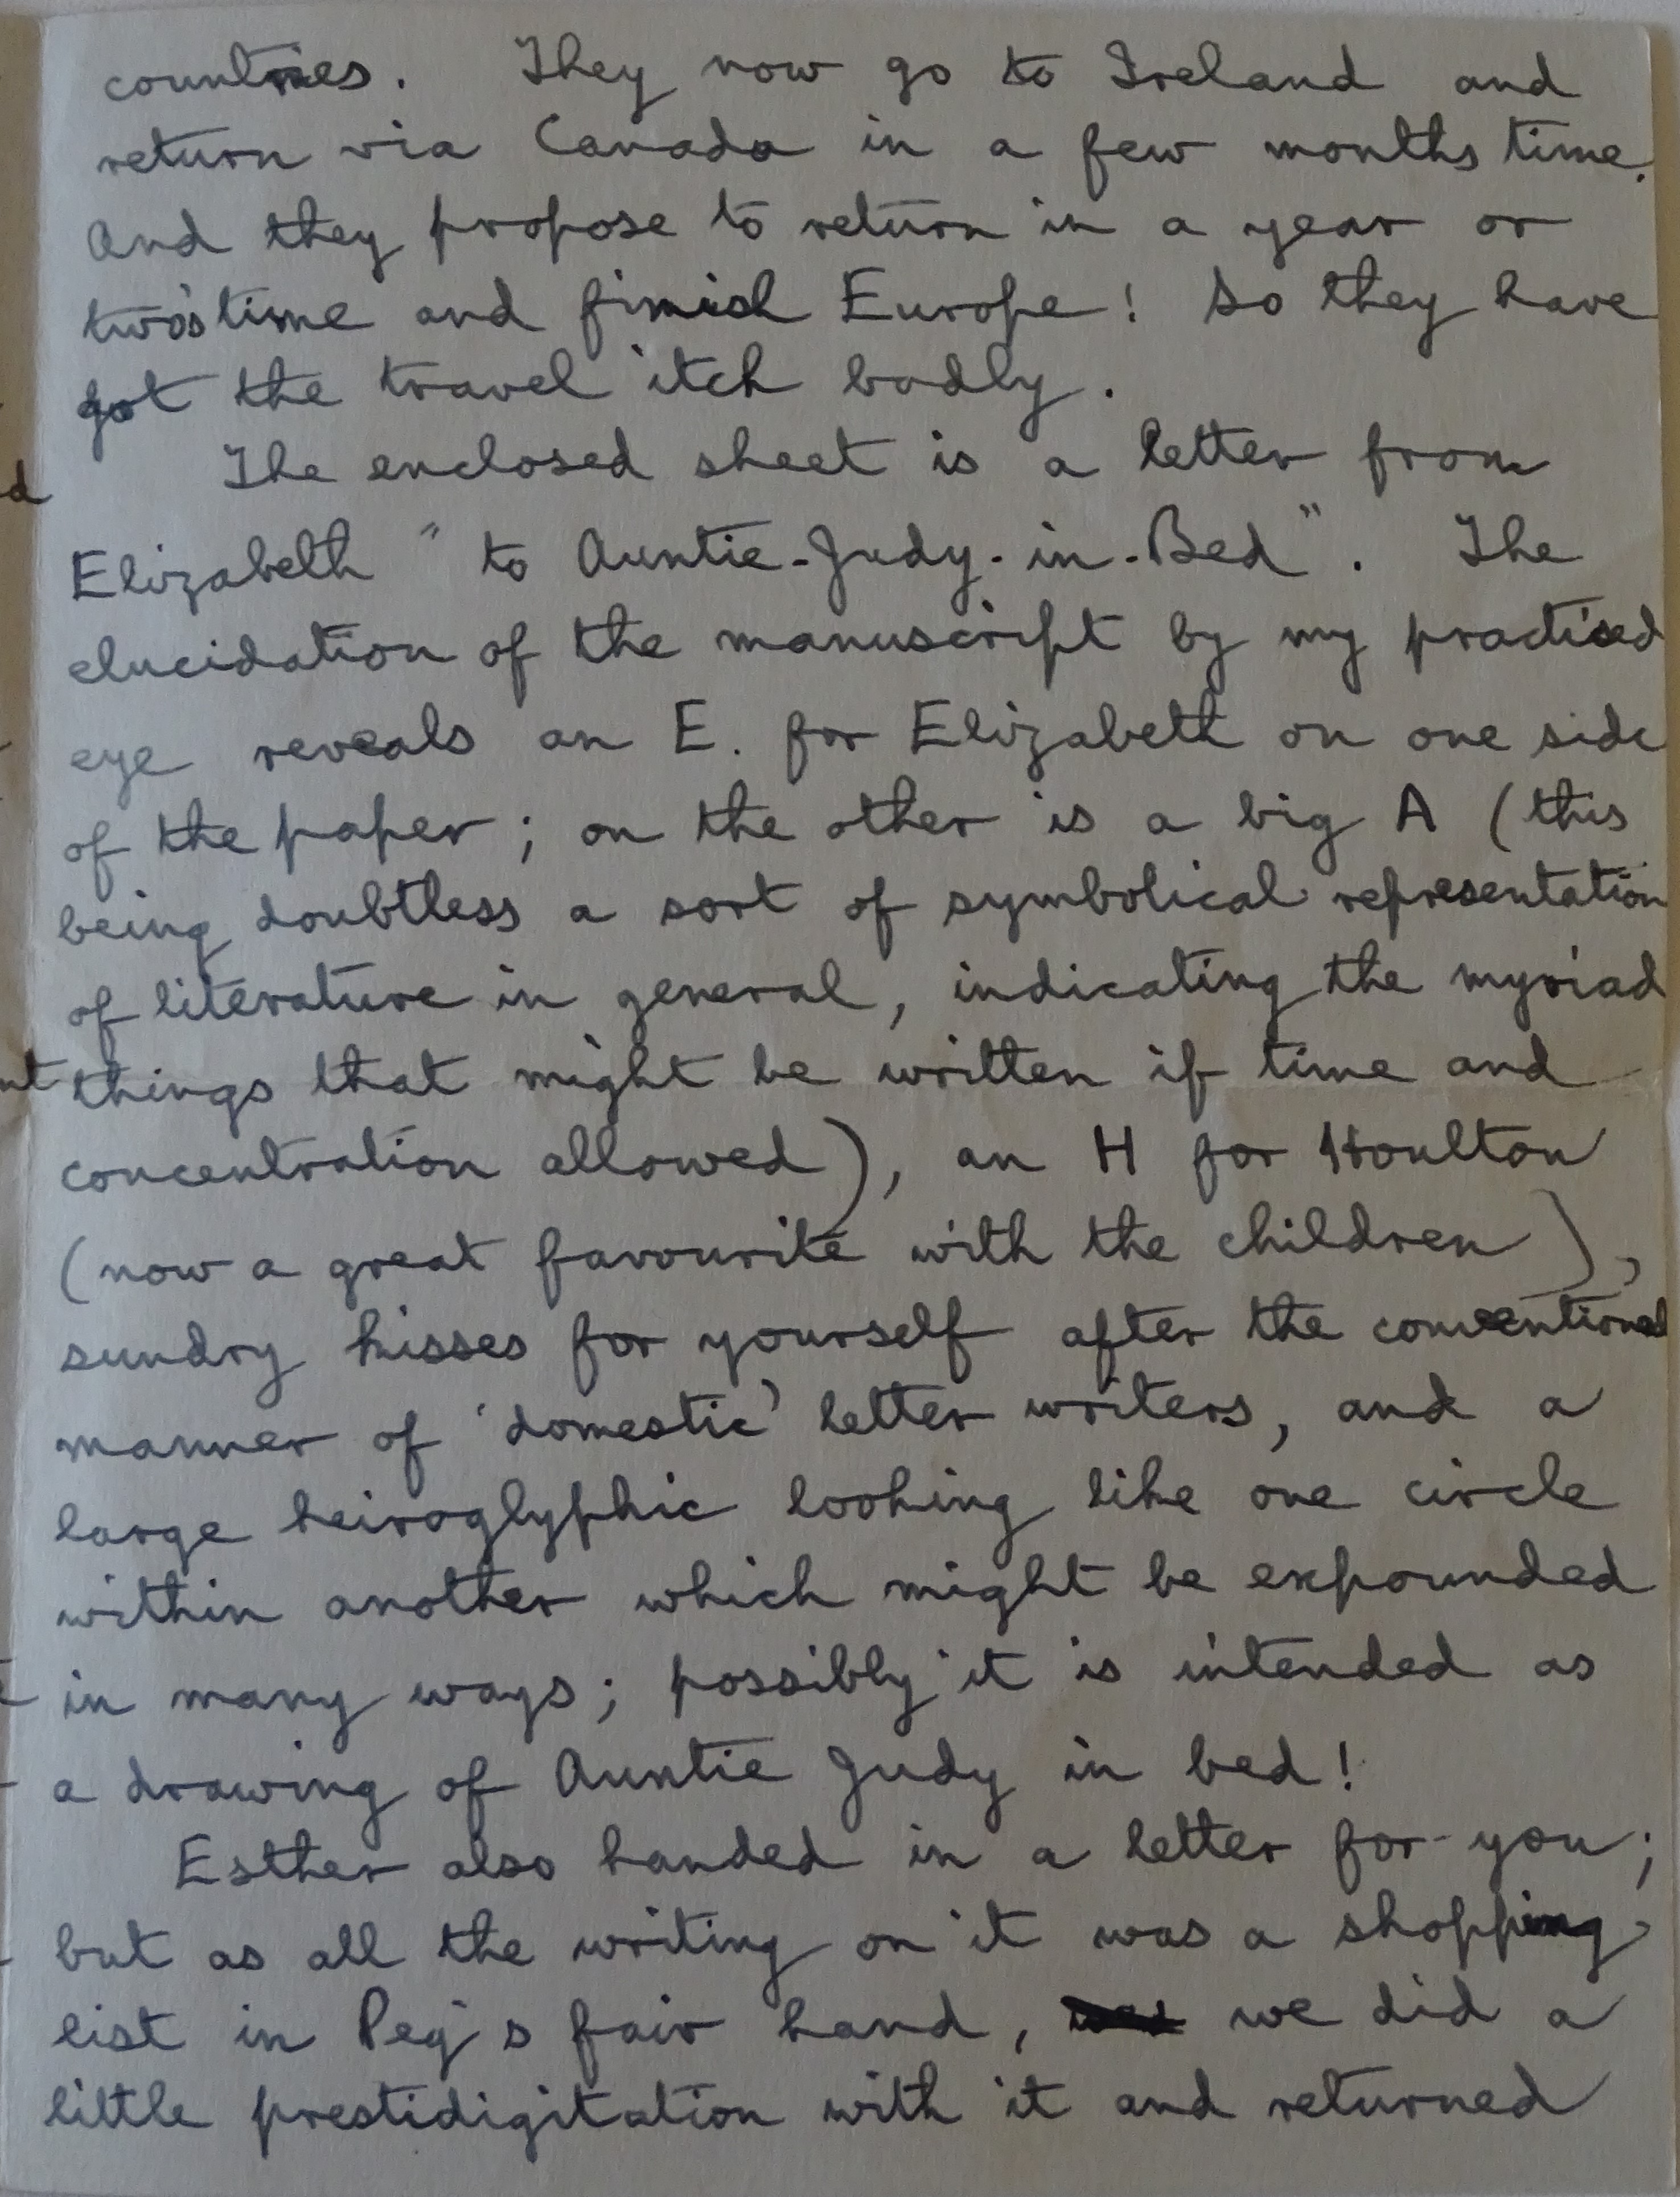 countries. They now go to Ireland and
return via Canada in a few months time.
And they propose to return in a year or
two's time and finish Europe! So they have
got the travel itch badly.
The enclosed sheet is a letter from
Elizabeth "to Auntie-Judy-in-Bed". The
elucidation of the manuscript by my practised
eye reveals an E. for Elizabeth on one side
of the paper; on the other is a big A (this
being doubtless a sort of symbolical representation
of literature in general, indicating the myriad
things that might be written if time and
concentration allowed), an H for Houlton
(now a great favourite with the children),
sundry kisses for yourself after the conventional
manner of 'domestic' letter writers, and a
large heiroglyphic looking like one circle
within another which might be expounded
in many ways; possibly it is intended as
a drawing of Auntie Judy in bed!
Esther also handed in a letter for you;
but as all the writing on it was a shopping
list in Peg's fair hand, we did a
little prestidigitation with it and returned